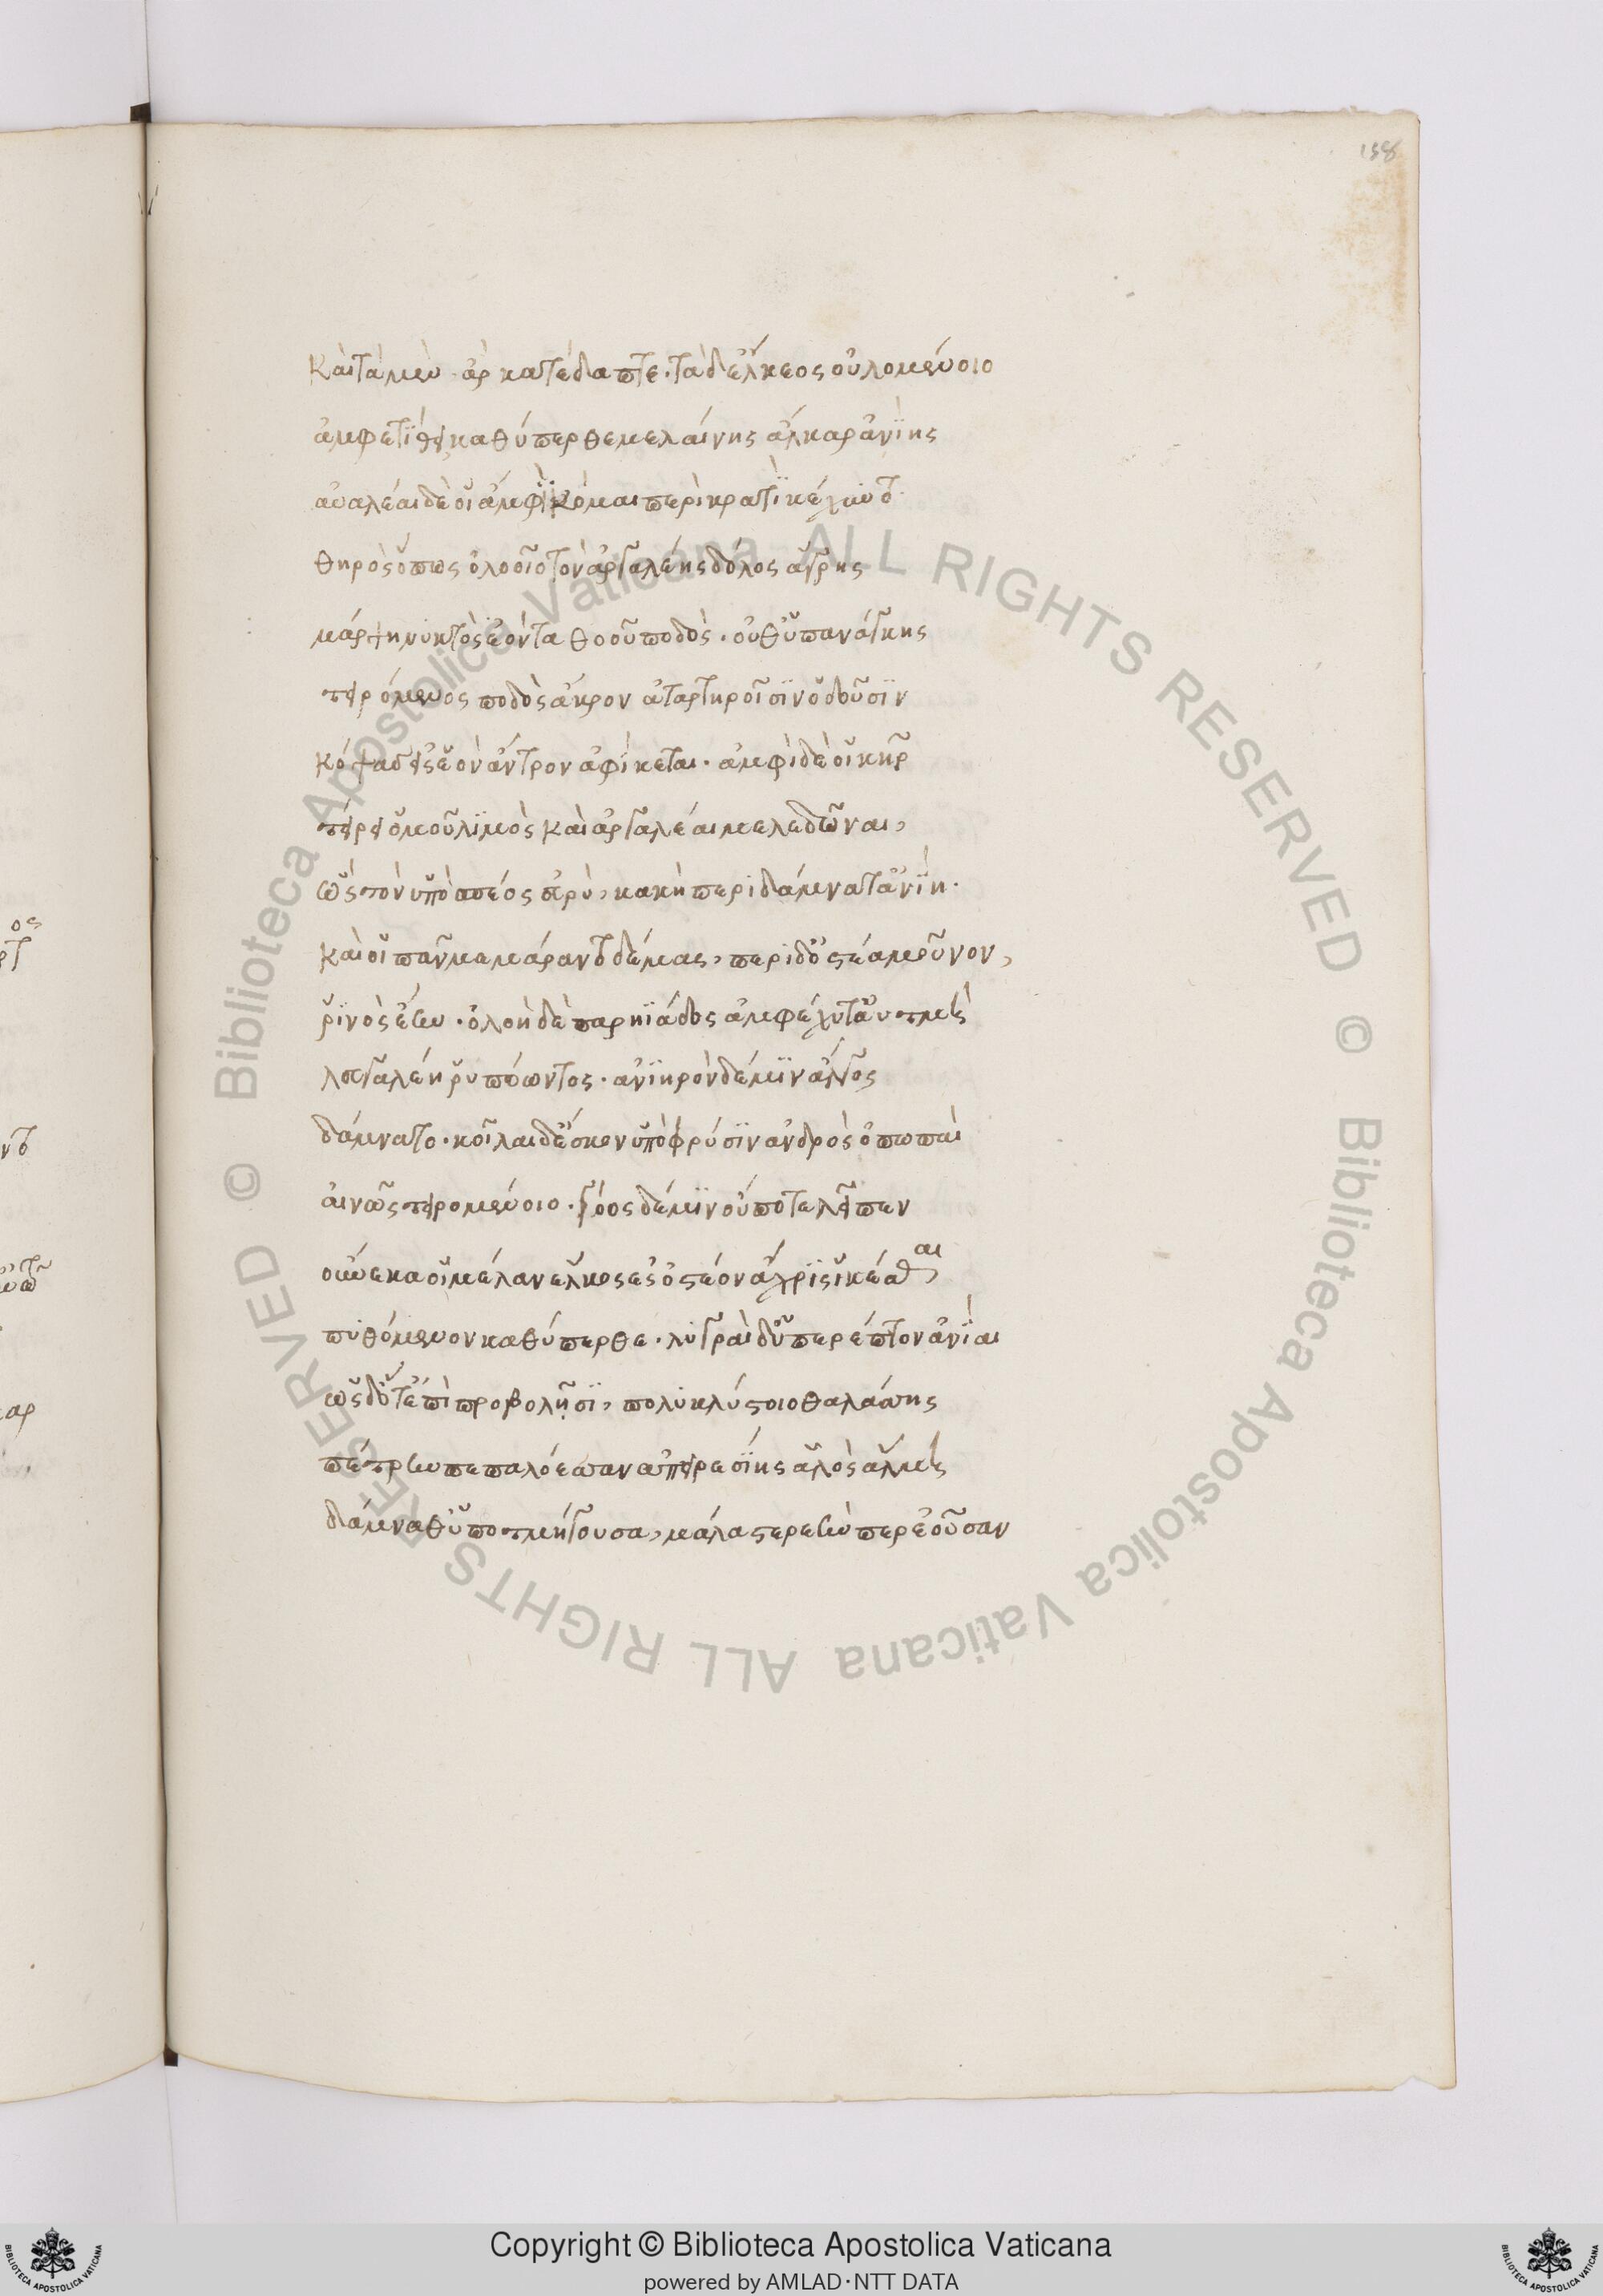 158
Καὶ τὰ μὲν ἂρ κατέδαπτε· τὰ δ' ἕλκεος οὐλομένοιο
ἀμφετίθει καθύπερθε μελαίνης ἄλκαρ ἀνίης
αὐαλέαι δέ οἱ ἀμφὶ κόμαι περὶ κρατὶ κέχυντο
θηρὸς ὅπως ὀλοοῖο τὸν ἀργαλέης δόλος ἄγρης
μάρψῃ νυκτὸς ἐόντα θοοῦ ποδὸς· οὐθ' ὑπ' ἀνάγκης
τειρόμενος ποδὸς ἄκρον ἀταρτηροῖσιν ὀδοῦσιν
κόψας εἰς ἑὸν ἄντρον ἀφίκεται· ἀμφὶ δέ οἱ κῆρ
τείρει ὁμοῦ λιμὸς καὶ ἀργαλέαι μελεδῶναι,
ὣς τὸν ὑπὸ σπέος εὐρὺ, κακὴ περιδάμνατ' ἀνίη·
Καί οἱ πᾶν μεμάραντο δέμας, περὶ δ' ὀστέα μοῦνον,
ῥινὸς ἔην· ὀλοὴ δὲ παρηιάδας ἀμφέχυτ' αὐτμὴ
λευγαλέη ῥυπόωντος· ἀνιηρὸν δέ μιν ἄλγος
δάμνατο· κοῖλαι δ' ἔσκον ὑπ' ὀφρύσιν ἀνδρὸς ὀπωπαὶ
αἰνῶς τειρομένοιο· γόος δέ μιν οὔποτε λεῖπεν
οὕνεκά οἱ μέλαν ἕλκος ἐς ὀστέον ἄχρις ἱκέσθαι
πυθόμενον καθύπερθε· λυγραὶ δ' ὑπερέπτον ἀνίαι
ὡς δ' ὅτ' ἐπὶ προβολῇσι, πολυκλύστοιο θαλάσσης
πέτρην παιπαλόεσσαν ἀπειρεσίης ἁλὸς ἅλμη
δάμναθ' ὑποτμήγουσα, μάλα στερεήν περ ἐοῦσαν
Copyright © Biblioteca Apostolica Vaticana
powered by AMLAD·NTT DATA